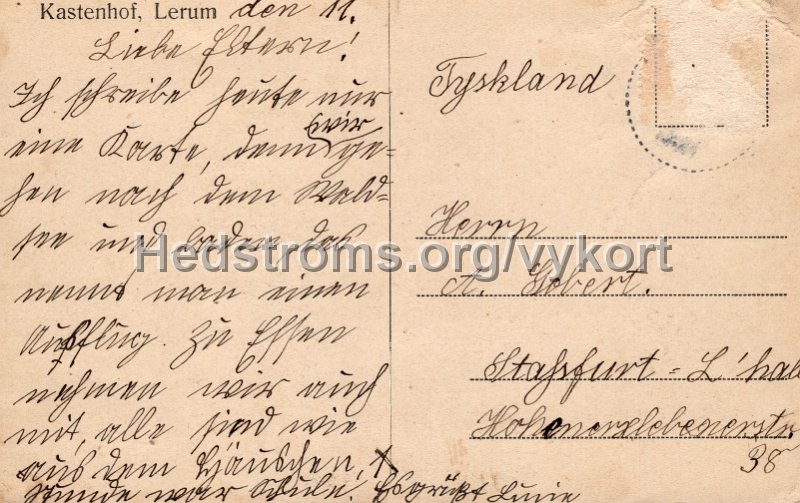 Kastenhof, Lerum den 11.
Liebe Eltern!
Ich schreibe heute nur
eine Karte, denn wir ge-
hen nach dem Wald-
see und baden das
nennt man einen
Ausflug. Zu Essen
nehmen wir auch
mit, alle sind wie
aus dem Häuschen,
Stunde war Schule! Es grüßt
Tyskland
Herrn
A. Gobert.
Stassfurt = L'hall
Hohenerxlebenerstr.
38
Hedstroms.org/vykort